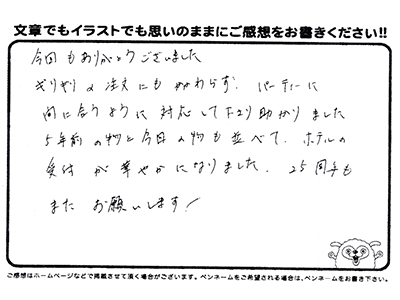 文章でもイラストでも思いのままにご感想をお書きください!!
今回もありがとうございました
ギリギリの注文にもかかわらず、パーティーに
間に合うように対応して下さり助かりました
5年前の物と今回の物も並べて、ホテルの
受付が華やかになりました。25周年も
またお願いします!
ご感想はホームページなどで掲載させて頂く場合がございます。ペンネームをご希望される場合は、ペンネームをお書き下さい。